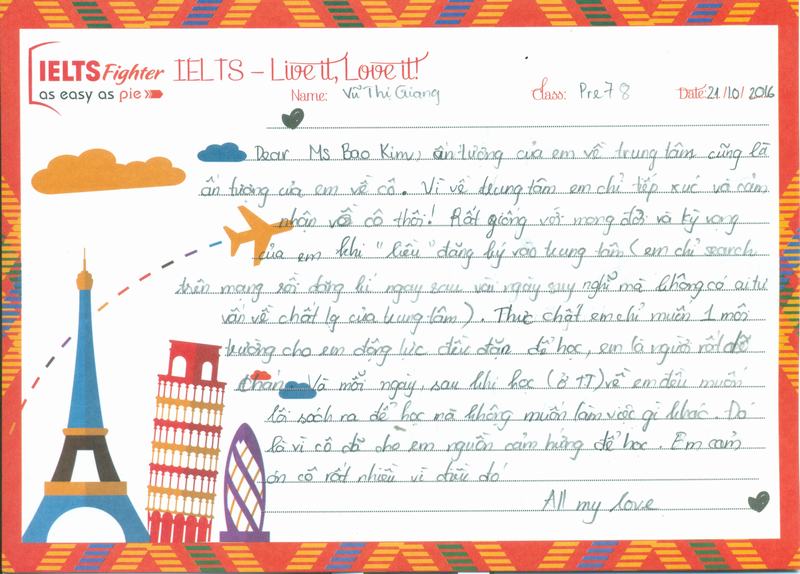 IELTS Fighter
as easy as pie
IELTS – Live it, Love it!
Name: Vũ Thị Giang
Class: Pre78
Date: 21/10/2016
Dear Ms Bao Kim, ấn tượng của em về trung tâm cũng là
ấn tượng của em về cô. Vì về trung tâm em chỉ tiếp xúc và cảm
nhận với cô thôi! Rất giống với mong đợi và kỳ vọng
của em khi "liều" đăng ký vào trung tâm (em chỉ search
trên mạng rồi đăng kí ngay sau vài ngày suy nghĩ mà không có ai tư
vấn về chất lg của trung tâm). Thực chất em chỉ muốn 1 môi
trường cho em động lực đều đặn để học, em là người rất dễ
chán. Và mỗi ngày, sau khi học (ở TT) về em đều muốn
lôi sách ra để học mà không muốn làm việc gì khác. Đó
là vì cô đã cho em nguồn cảm hứng để học. Em cảm
ơn cô rất nhiều vì điều đó
All my love